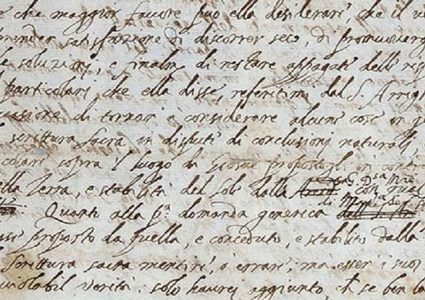 che maggior favore può ella desiderare, che il ve
render satisfazione di discorrer seco, di promuoverg
le soluzioni, e finalm. di restare appagati delle ris
particolari che ella disse, referitimi dal S. Arrig
casione di tornare a considerare alcune cose in g
scrittura sacra in dispute di conclusioni naturali,
colari sopra il luogo di Giosue propostoli, in contr
ella Terra, e stabilità del Sole dalla
Quanto alla p.a domanda generica di
sse proposto da quella, e conceduto, e stabilito dalla
scrittura sacra mentire, o errare; ma esser i suoi
inviolabil verità: solo haurei aggiunto, che se ben la